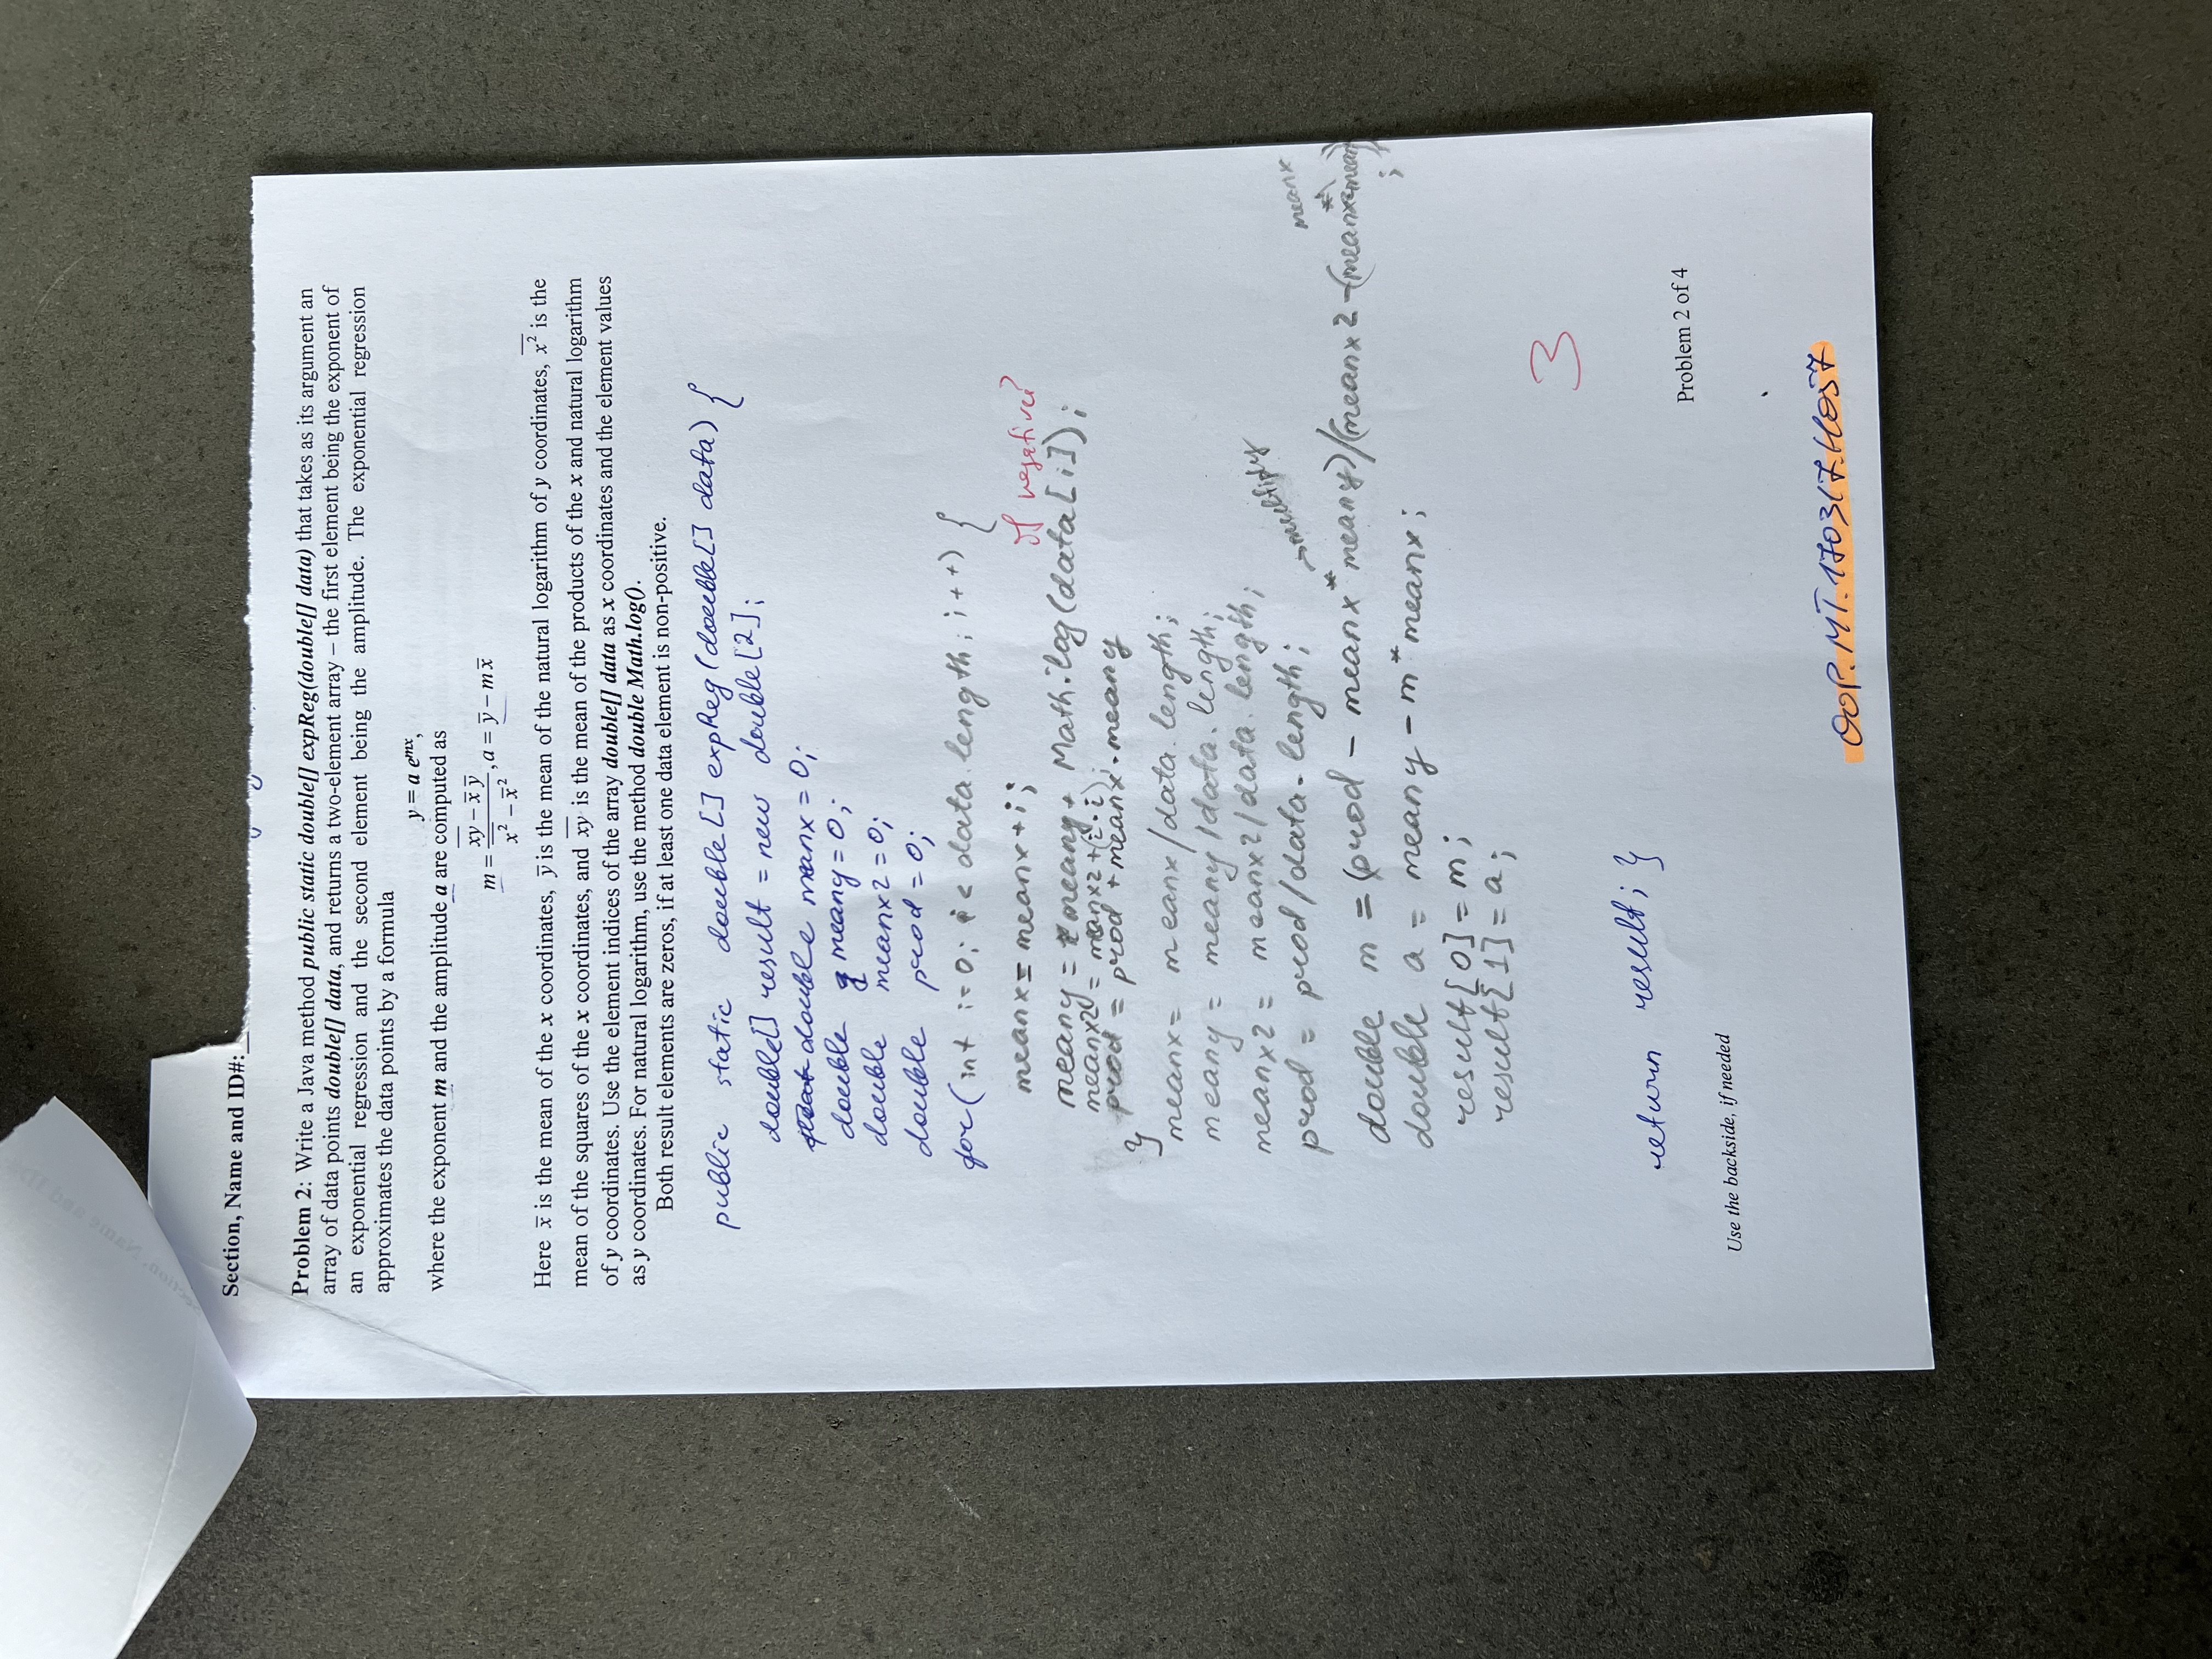 Section, Name and ID#:
Problem 2: Write a Java method public static double[] expReg(double[] data) that takes as its argument an
array of data points double[] data, and returns a two-element array – the first element being the exponent of
an exponential regression and the second element being the amplitude. The exponential regression
approximates the data points by a formula
y = a e^{mx},
where the exponent m and the amplitude a are computed as
m = \frac{\overline{xy} - \overline{x}\,\overline{y}}{\overline{x^2} - \overline{x}^2}, a = \overline{y} - m\overline{x}
Here x̄ is the mean of the x coordinates, ȳ is the mean of the natural logarithm of y coordinates, \overline{x^2} is the
mean of the squares of the x coordinates, and \overline{xy} is the mean of the products of the x and natural logarithm
of y coordinates. Use the element indices of the array double[] data as x coordinates and the element values
as y coordinates. For natural logarithm, use the method double Math.log().
Both result elements are zeros, if at least one data element is non-positive.
public static double[] expReg(double[] data) {
double[] result = new double[2];
double meanx = 0;
double meany = 0;
double meanx2 = 0;
double prod = 0;
for(int i=0; i< data.length; i++) {
meanx = meanx+i;
If negative?
meany = meany + Math.log(data[i]);
meanx2 = meanx2 + (i·i);
prod = prod + meanx·meany
}
meanx = meanx/data.length;
meany = meany/data.length;
meanx2 = meanx2/data.length;
prod = prod/data.length;
→multiply
meanx
double m = (prod - meanx*meany)/(meanx2 - (meanx*mean)
;
double a = meany - m*meanx;
result[0] = m;
result[1] = a;
3
return result; }
Problem 2 of 4
Use the backside, if needed
OOP.MT.170317.H057